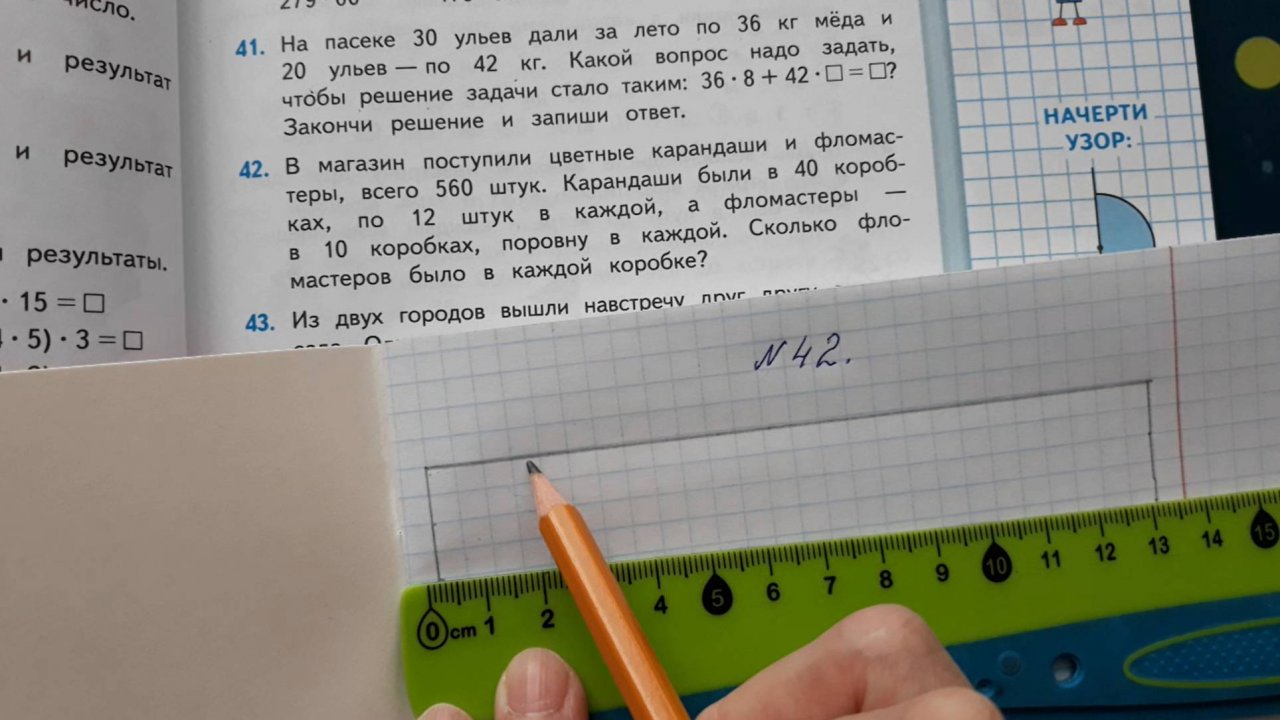 число.
и результат
и результат
результаты.
· 15 = □
· 5) · 3 = □
41. На пасеке 30 ульев дали за лето по 36 кг мёда и
20 ульев — по 42 кг. Какой вопрос надо задать,
чтобы решение задачи стало таким: 36 · 8 + 42 · □ = □?
Закончи решение и запиши ответ.
42. В магазин поступили цветные карандаши и фломас-
теры, всего 560 штук. Карандаши были в 40 короб-
ках, по 12 штук в каждой, а фломастеры —
в 10 коробках, поровну в каждой. Сколько фло-
мастеров было в каждой коробке?
43. Из двух городов вышли навстречу друг другу
НАЧЕРТИ
УЗОР:
№ 42.
0 cm 1 2 4 5 6 7 8 9 10 11 12 13 14 15